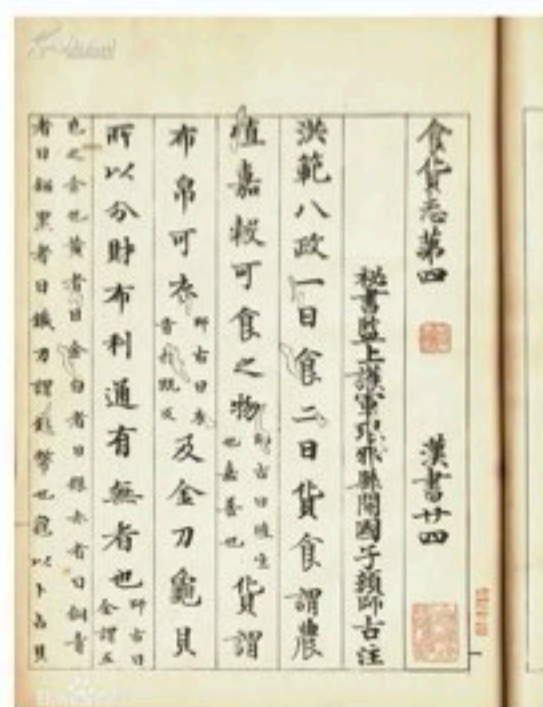 食貨志第四 漢書廿四
秘書監上護軍琅邪縣開國子顏師古注
洪範八政一曰食二曰貨食謂農
殖嘉穀可食之物師古曰殖生也嘉善也貨謂
布帛可衣師古曰衣音於既反及金刀龜貝
所以分財布利通有無者也師古曰金謂五
色之金也黃者曰金白者曰銀赤者曰銅青
者曰鉛黑者曰鐵刀謂錢幣也龜以卜占貝